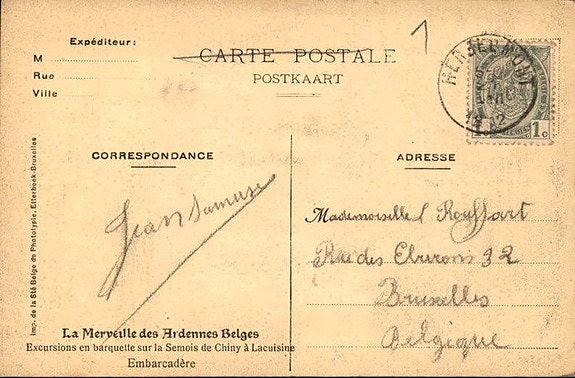 Expéditeur:
M
Rue
Ville
CARTE POSTALE
POSTKAART
HERBEUMONT
12
1c
CORRESPONDANCE
ADRESSE
Jean
Mademoiselle Rouffart
Rue des Eburons 32
Bruxelles
Belgique
La Merveille des Ardennes Belges
Excursions en barquette sur la Semois de Chiny à Lacuisine
Embarcadère
Imp. de la Sté Belge de Phototypie, Etterbeek-Bruxelles